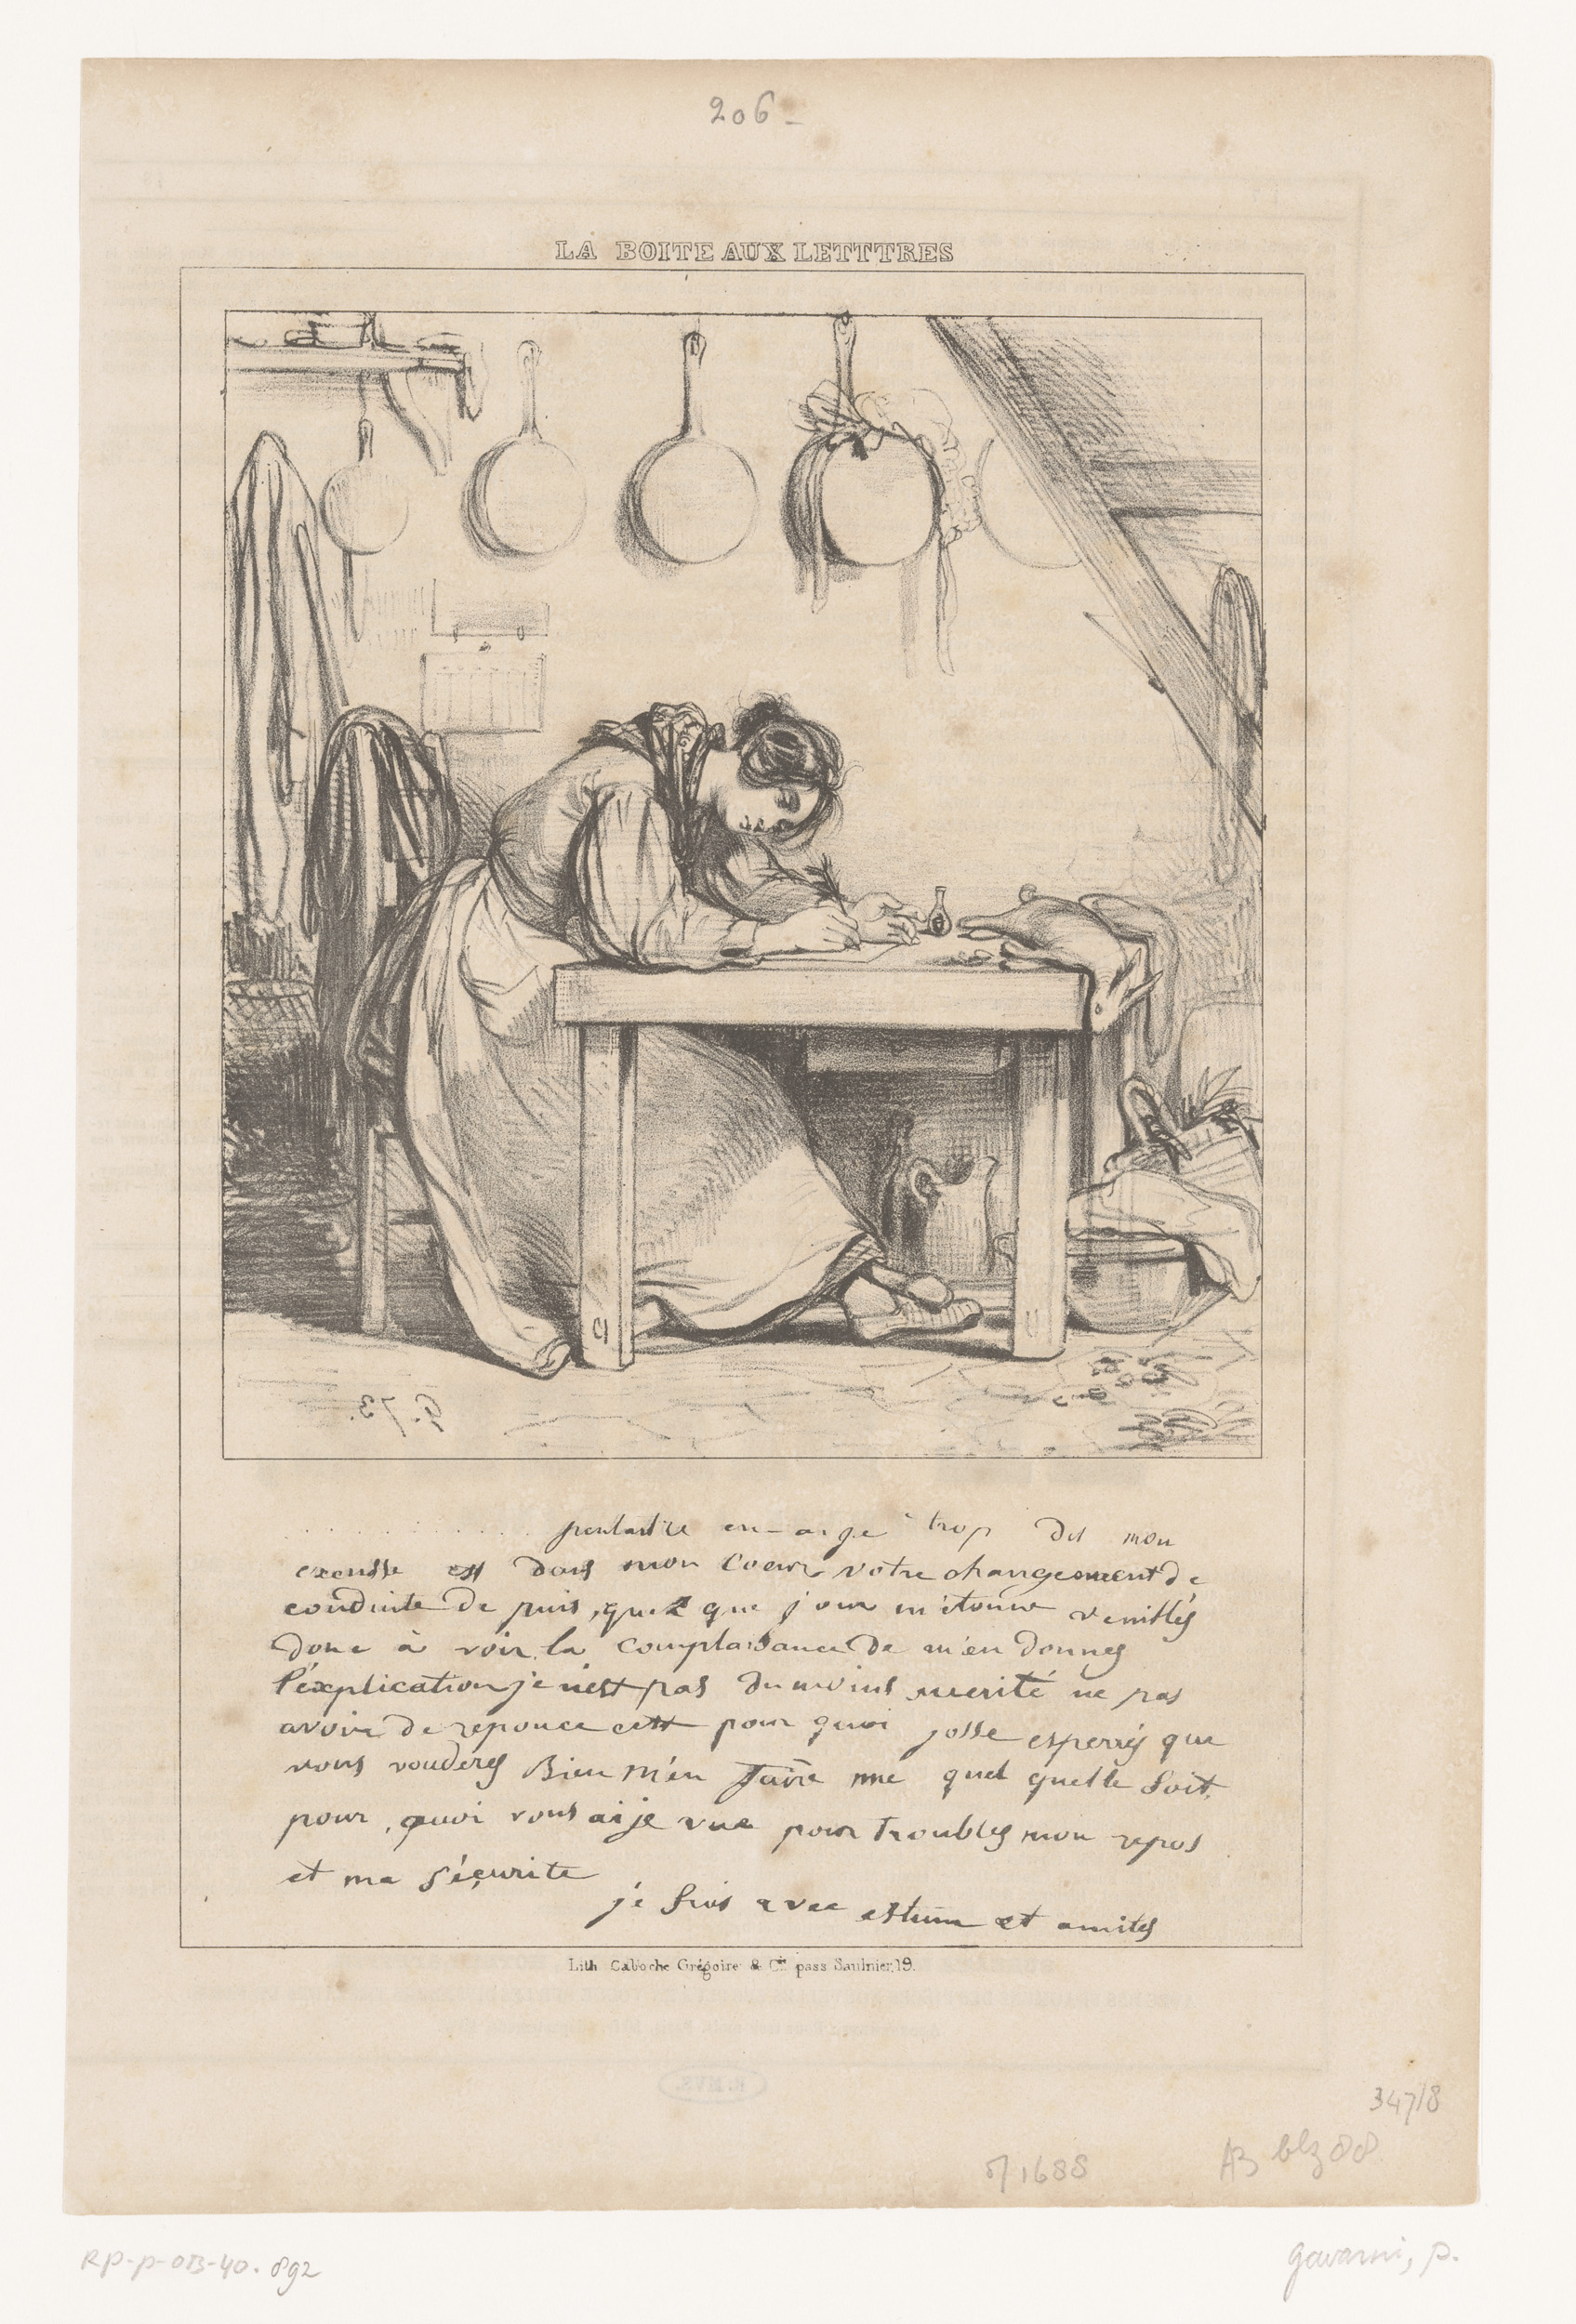 206
LA BOITE AUX LETTTRES
G. 73.
. . . . . . . . . . . . . en-ai je trop dit mon
excusse est dans mon coeur votre changement de
conduite de puis, quel que jour m'étonne veuillés
donc à voir la complaisance de m'en donnes
l'éxplication je n'est pas du moins merité ne pas
avoir de reponce cest pour quoi josse esperrés que
vous vouderes Bien m'en faire une quel quelle soit
pour, quoi vous ai je vue pour troubles mon repos
et ma sécurite
je suis avec estime et amités
Lith Caboche Grégoire & Cie pass Saulnier, 19.
347/8
1688
A3 blz 88
RP-P-OB-40.892
Gavarni, P.